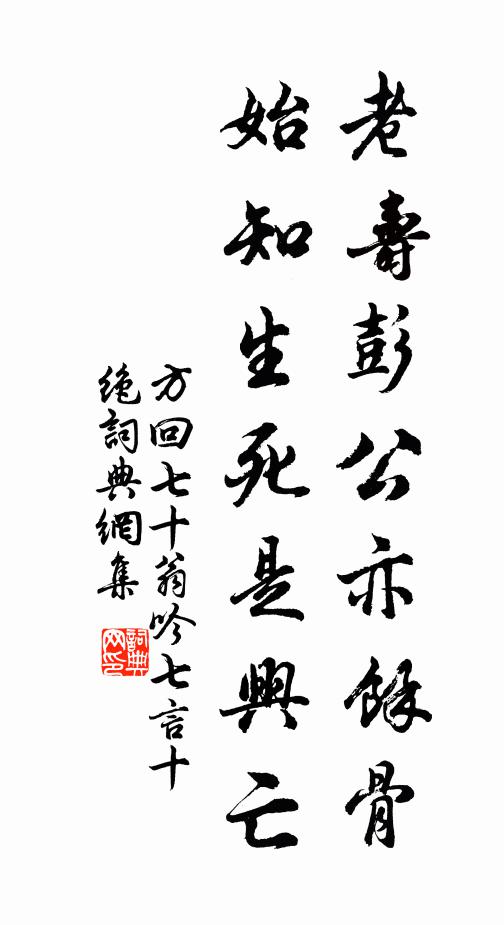 老壽彭公亦餘骨
始知生死是興亡
方回七十翁吟七言十
絶詞典網集
詞典网印